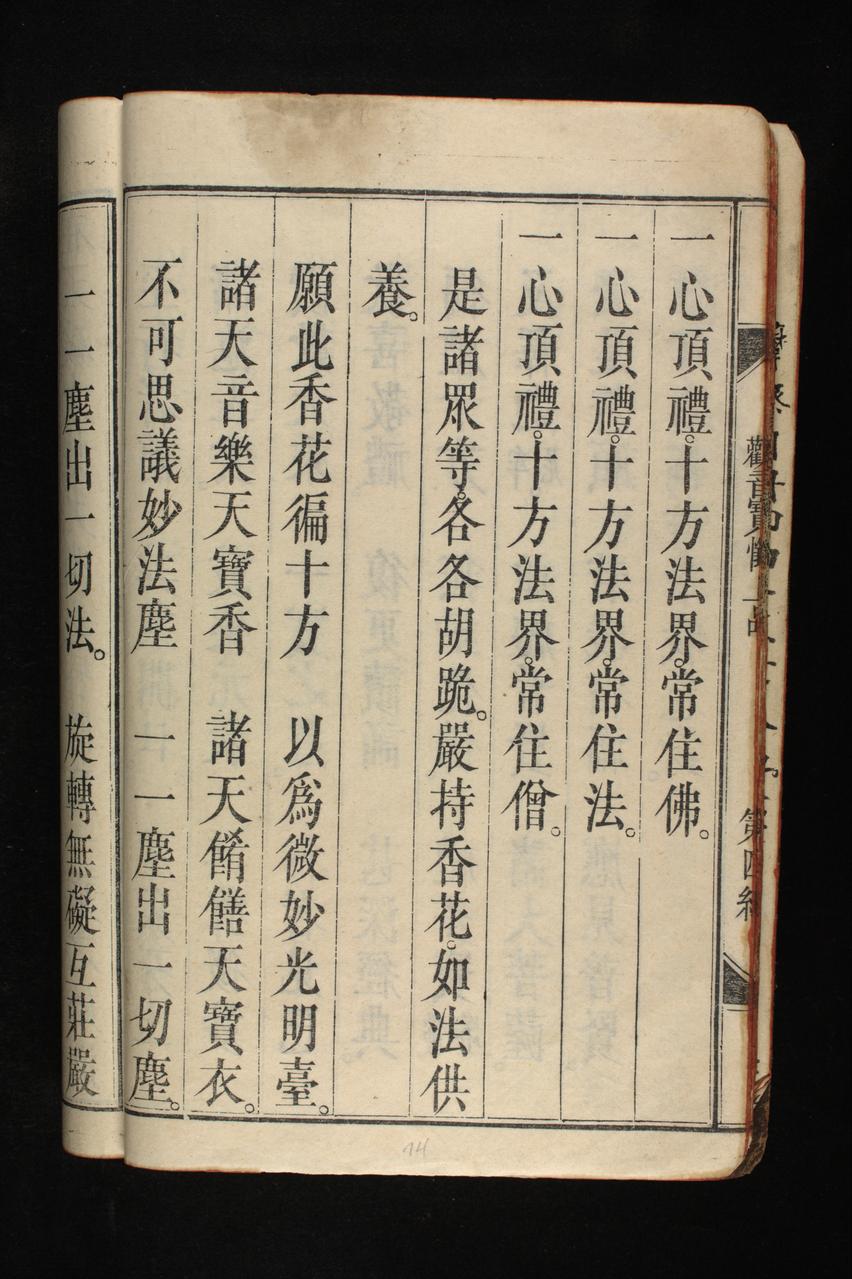 一心頂禮。十方法界。常住佛。
一心頂禮。十方法界。常住法。
一心頂禮。十方法界。常住僧。
是諸眾等。各各胡跪。嚴持香花。如法供
養。
願此香花徧十方　以爲微妙光明臺。
諸天音樂天寶香　諸天餚饍天寶衣。
不可思議妙法塵　一一塵出一切塵。
一一塵出一切法。　旋轉無礙互莊嚴
觀音寶懺
第四
14